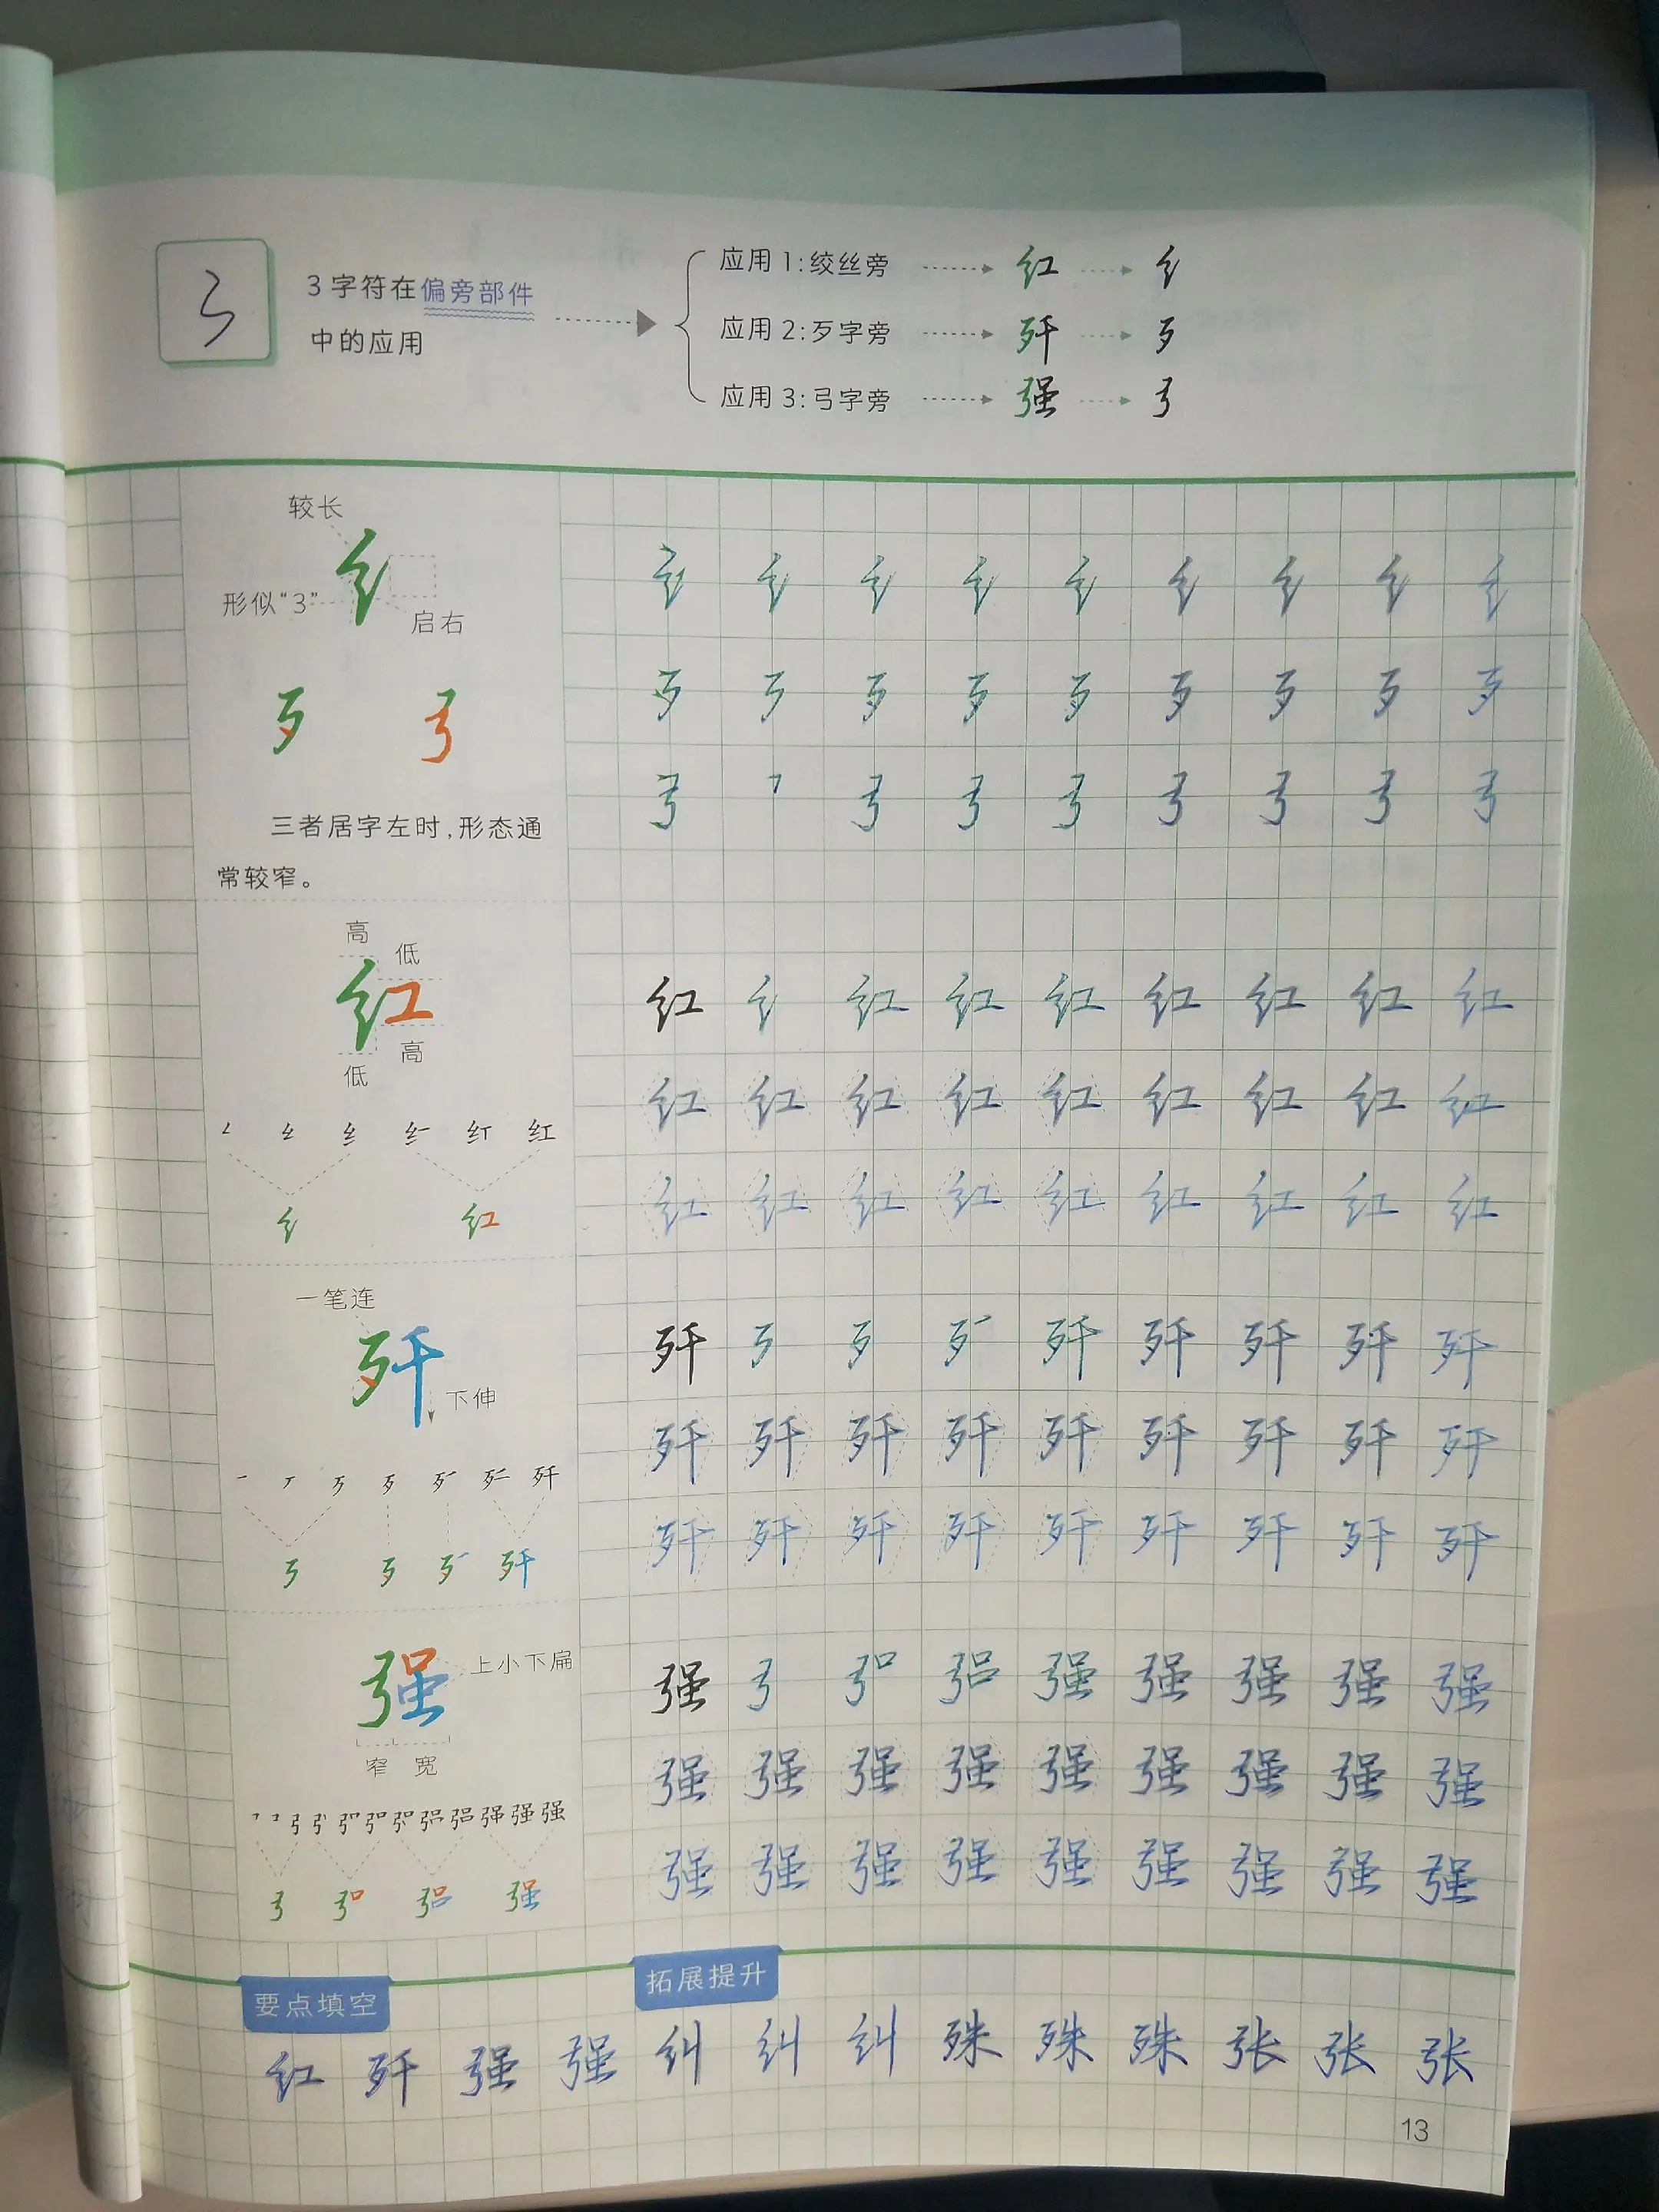 3
3字符在偏旁部件
中的应用
应用1:绞丝旁 红 纟
应用2:歹字旁 歼 歹
应用3:弓字旁 强 弓
较长
纟
形似“3”
启右
歹 弓
三者居字左时,形态通
常较窄。
纟 纟 纟 纟 纟 纟 纟 纟 纟
歹 歹 歹 歹 歹 歹 歹 歹
弓 弓 弓 弓 弓 弓 弓 弓
高
低
红
高
低
红
纟 红
红 纟 红 红 红 红 红 红 红
红 红 红 红 红 红 红 红 红
红 红 红 红 红 红 红 红 红
一笔连
歼
下伸
歹 歼
歹 歼
歼 歹 歹 歼 歼 歼 歼 歼
歼 歼 歼 歼 歼 歼 歼 歼 歼
歼 歼 歼 歼 歼 歼 歼 歼 歼
强
上小下扁
窄 宽
强
弓 强
强 弓 强 强 强 强 强
强 强 强 强 强 强 强 强 强
强 强 强 强 强 强 强 强 强
要点填空
红 歼 强 强
拓展提升
纠 纠 纠 殊 殊 殊 张 张 张
13